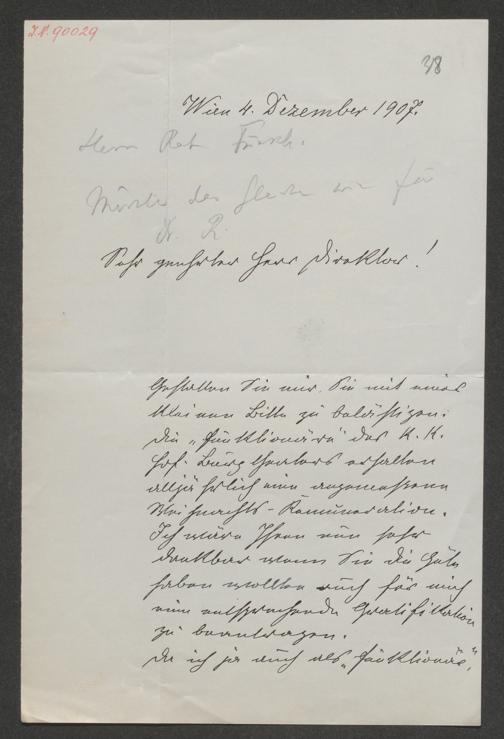 I.N. 90029
38
Wien 4. Dezember 1907.
Herrn Rat Fürsch.
das Gleiche wie für
Dr. R.
Sehr geehrter Herr Direktor!
Gestatten Sie mir, Sie mit einer
kleinen Bitte zu belästigen.
Die „Funktionäre" des K. K.
Hof-Burgtheaters erhalten
alljährlich eine angemessene
Weihnachts-Remuneration.
Ich wäre Ihnen nun sehr
dankbar wenn Sie die Güte
haben wollten auch für mich
eine entsprechende Gratifikation
zu beantragen.
Da ich ja auch als „Funktionär",